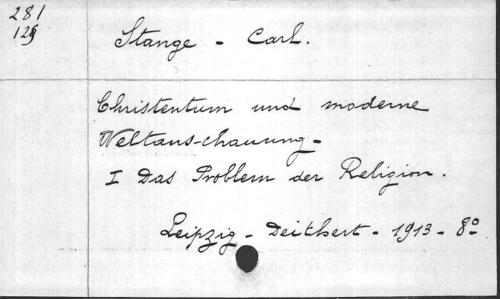 281
129
Stange - Carl.
Christentum und moderne
Weltans-chauung -
I Das Problem der Religion.
Leipzig - Deithert - 1913 - 8º